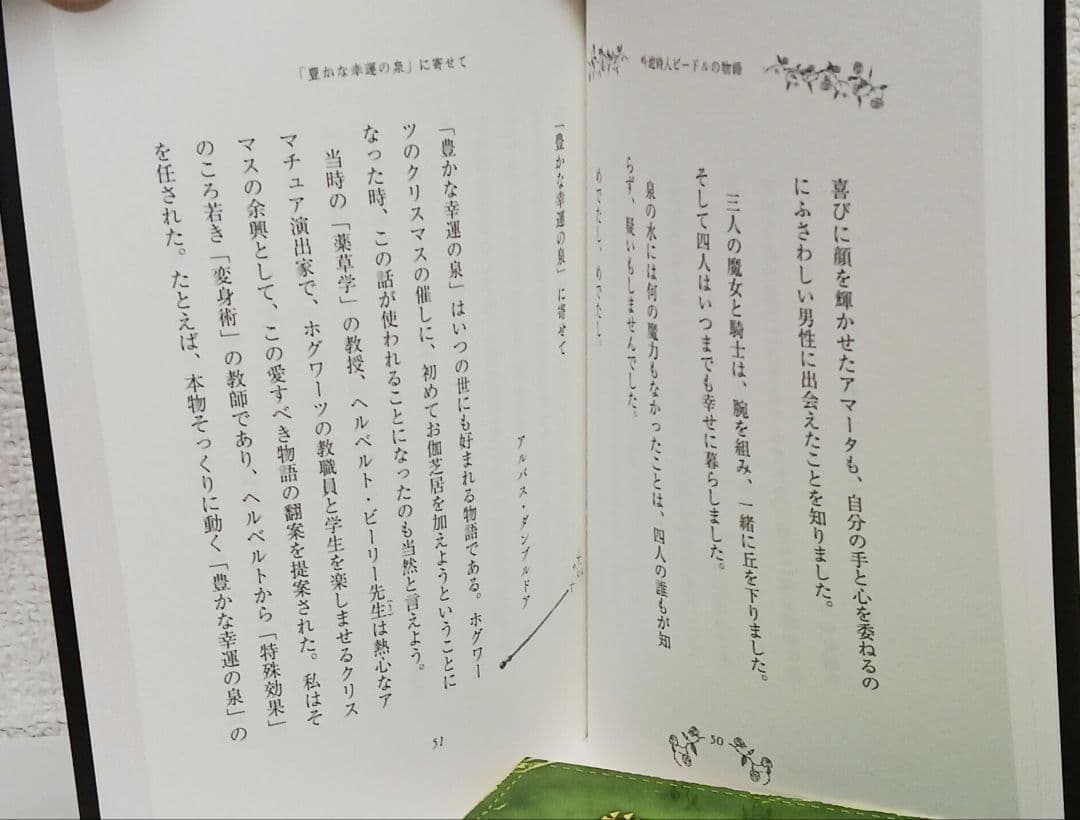 吟遊詩人ビードルの物語
喜びに顔を輝かせたアマータも、自分の手と心を委ねるの
にふさわしい男性に出会えたことを知りました。
三人の魔女と騎士は、腕を組み、一緒に丘を下りました。
そして四人はいつまでも幸せに暮らしました。
泉の水には何の魔力もなかったことは、四人の誰もが知
らず、疑いもしませんでした。
めでたし、めでたし。
50
「豊かな幸運の泉」に寄せて
「豊かな幸運の泉」に寄せて
アルバス・ダンブルドア
「豊かな幸運の泉」はいつの世にも好まれる物語である。ホグワー
ツのクリスマスの催しに、初めてお伽芝居を加えようということに
なった時、この話が使われることになったのも当然と言えよう。
当時の「薬草学」の教授、ヘルベルト・ビーリー先生は熱心なア
マチュア演出家で、ホグワーツの教職員と学生を楽しませるクリス
マスの余興として、この愛すべき物語の翻案を提案された。私はそ
のころ若き「変身術」の教師であり、ヘルベルトから「特殊効果」
を任された。たとえば、本物そっくりに動く「豊かな幸運の泉」の
51